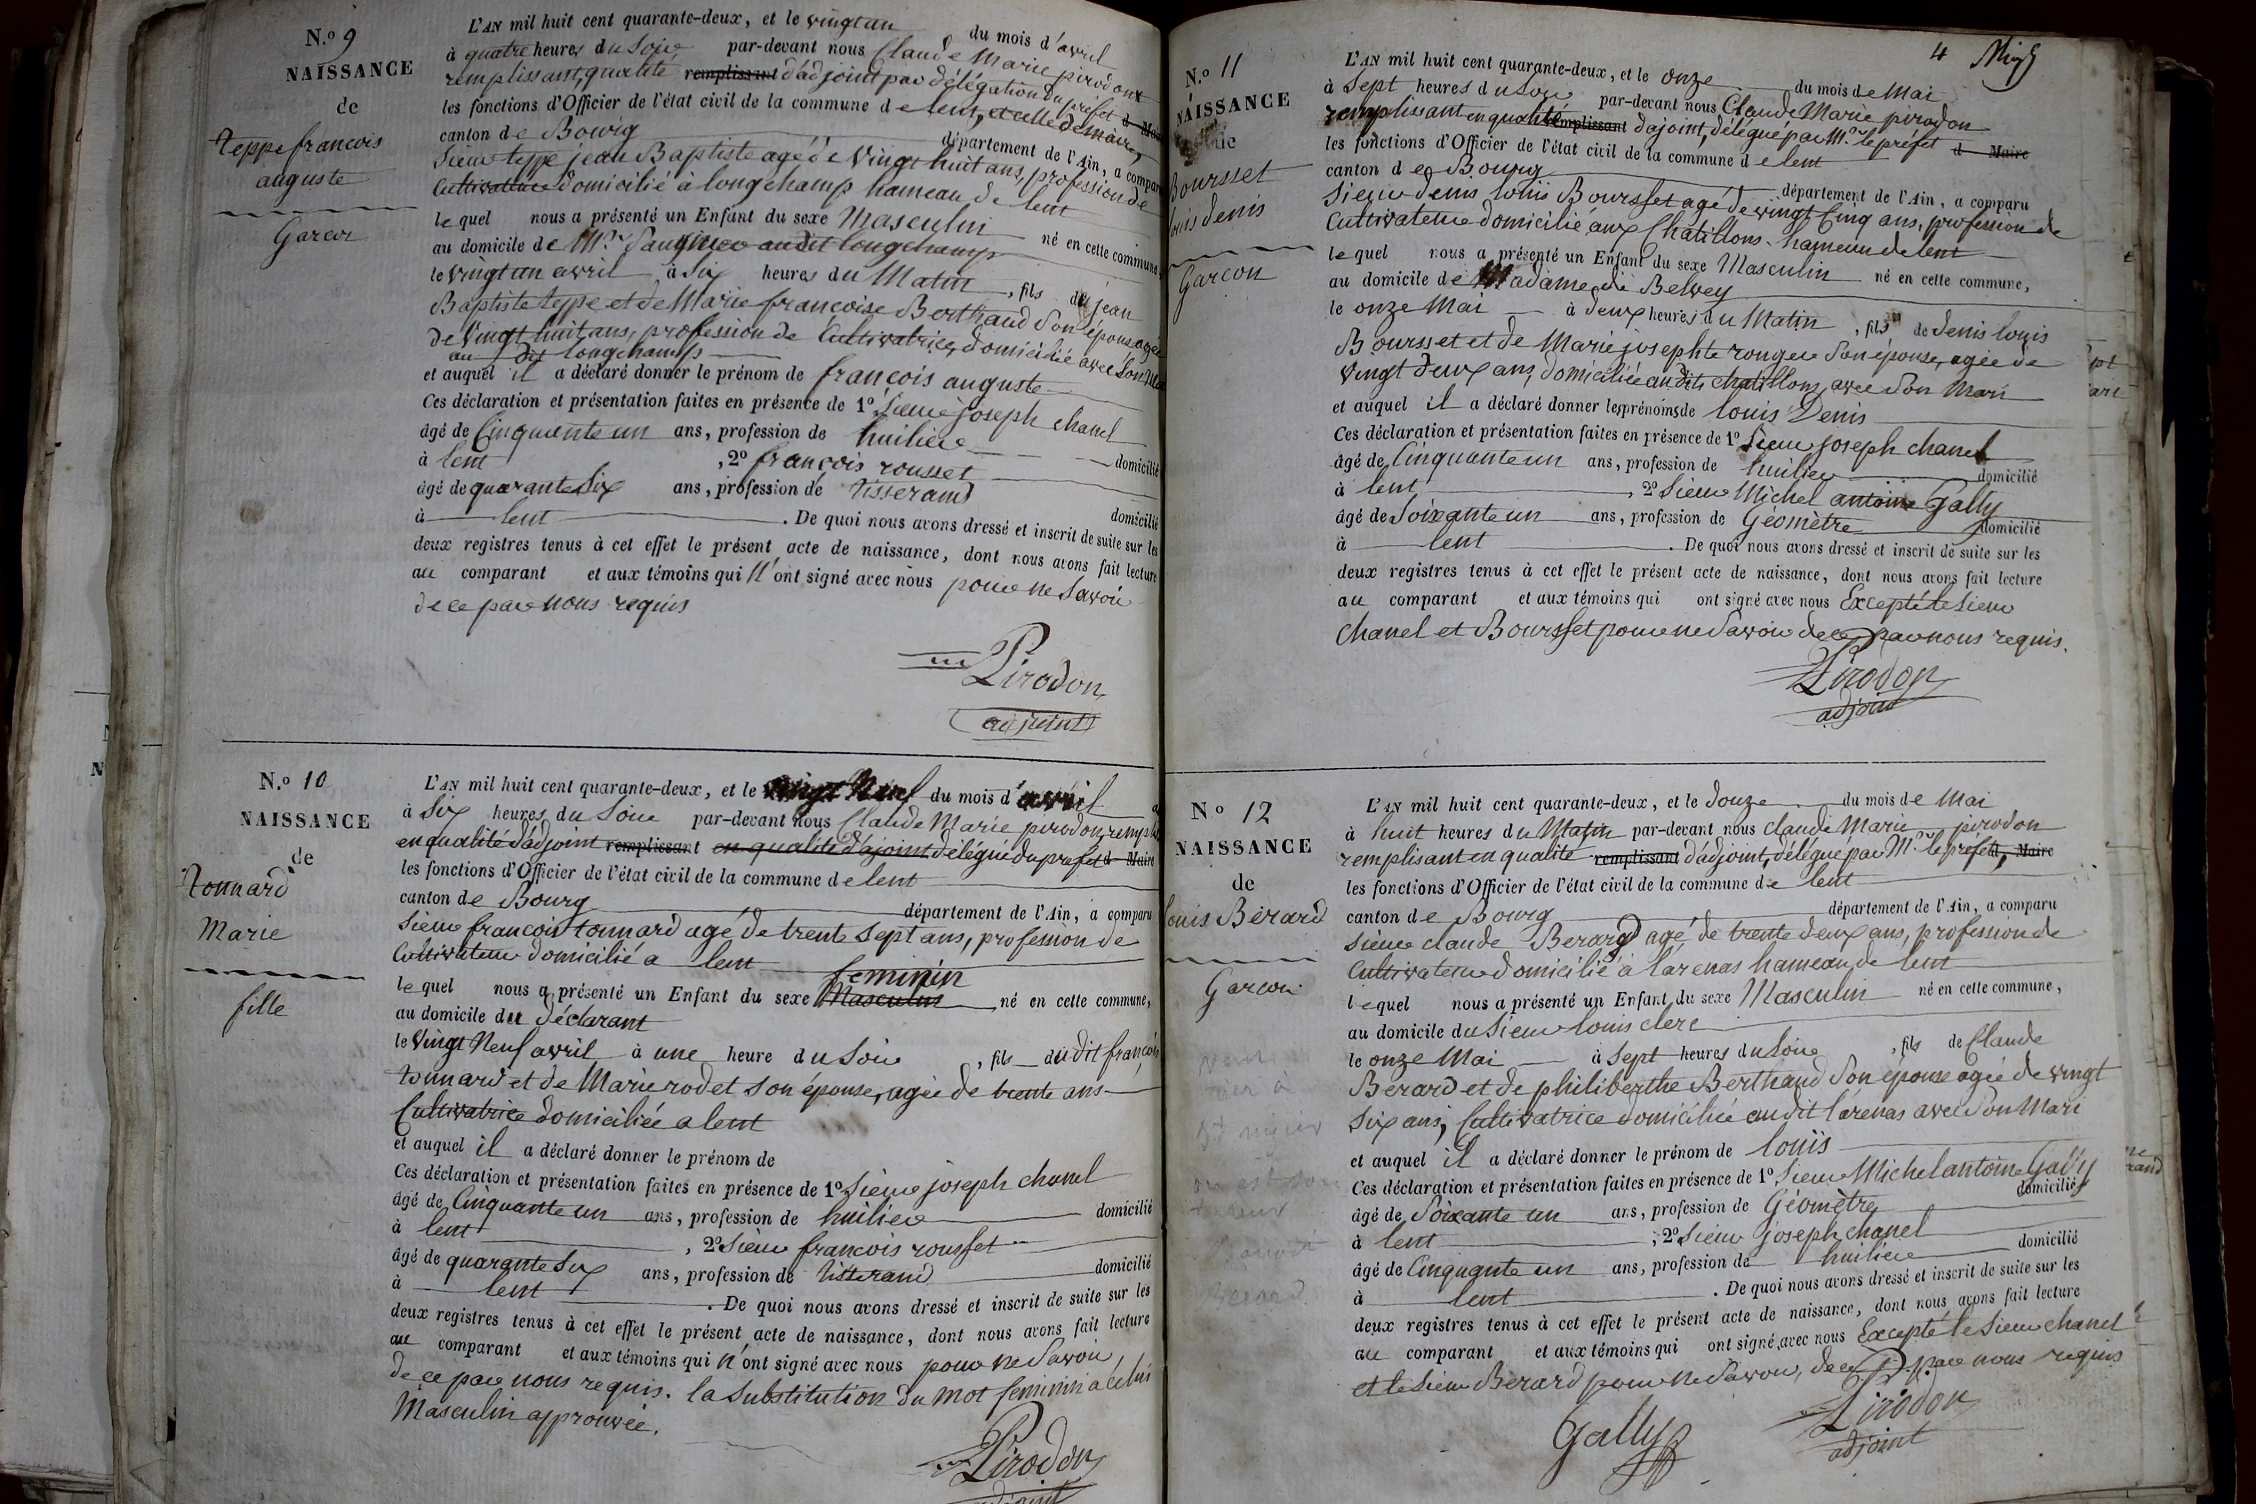 N.o 9
NAISSANCE
de
teppe francois
auguste
Garcon
L'AN mil huit cent quarante-deux, et le vingt un du mois d'avril
à quatre heures du Soir par-devant nous Claude Marie pirodon
remplissant, qualité remplissant d'adjoint par délégation du préfet d Maire
les fonctions d'Officier de l'état civil de la commune de lent, et celle de maire,
canton de Bourg département de l'Ain, a comparu
Sieur teppe jean Baptiste agé de Vingt huit ans, profession de
Cultivateur domicilié à longchamp hameau de lent
lequel nous a présenté un Enfant du sexe Masculin né en cette commune
au domicile de Mr. audit longchamp
le Vingt un avril à Six heures du Matin, fils de jean
Baptiste teppe et de Marie francoise Berthaud Son épouse agée
de Vingt huit ans, profession de Cultivatrice, domicilié avec Son Mari
au dit longchamps
et auquel il a déclaré donner le prénom de françois auguste
Ces déclaration et présentation faites en présence de 1o Sieur joseph chanel
âgé de Cinquante un ans, profession de huilier domicilié
à lent, 2o françois rousset
âgé de quarante Six ans, profession de tisserand domicilié
à lent. De quoi nous avons dressé et inscrit de suite sur les
deux registres tenus à cet effet le présent acte de naissance, dont nous avons fait lecture
au comparant et aux témoins qui n'ont signé avec nous pour ne Savoir
de ce par nous requis
Pirodon
adjoint
N.o 10
NAISSANCE
de
tonnard
Marie
fille
L'AN mil huit cent quarante-deux, et le vingt Neuf du mois d'avril
à Six heures du Soir par-devant nous Claude Marie pirodon, rempli
en qualité d'adjoint remplissant en qualité d'ajoint délégué du prefet d Maire
les fonctions d'Officier de l'état civil de la commune de lent
canton de Bourg département de l'Ain, a comparu
Sieur francois tonnard agé de trente Sept ans, profession de
Cultivateur domicilié a lent
feminin
lequel nous a présenté un Enfant du sexe Masculin né en cette commune,
au domicile du déclarant
le Vingt Neuf avril à une heure du Soir, fils du dit françois
tonnard et de Marie rodet son épouse, agée de trente ans
Cultivatrice domiciliée a lent
et auquel il a déclaré donner le prénom de
Ces déclaration et présentation faites en présence de 1o Sieur joseph chanel
âgé de Cinquante un ans, profession de huilier domicilié
à lent, 2o Sieur francois rousset
âgé de quarante Six ans, profession de tisserand domicilié
à lent. De quoi nous avons dressé et inscrit de suite sur les
deux registres tenus à cet effet le présent acte de naissance, dont nous avons fait lecture
au comparant et aux témoins qui n'ont signé avec nous pour ne Savoir,
de ce par nous requis. la Substitution du mot feminin a celui
Masculin approuvée.
Pirodon
adjoint
4
N.o 11
NAISSANCE
de
Boursset
louis denis
Garcon
L'AN mil huit cent quarante-deux, et le onze du mois de Mai
à Sept heures du Soir par-devant nous Claude Marie pirodon
remplissant en qualité remplissant d'ajoint, délégué par Mr. le préfet d Maire
les fonctions d'Officier de l'état civil de la commune de lent
canton de Bourg département de l'Ain, a comparu
Sieur denis louis Boursset agé de vingt Cinq ans, profession de
Cultivateur domicilié aux Chatillons hameau de lent
lequel nous a présenté un Enfant du sexe Masculin né en cette commune,
au domicile de Madame de Belvey
le onze Mai à deux heures du Matin, fils de denis louis
Boursset et de Marie josephte rongeu Son épouse, agée de
Vingt deux ans, domiciliée audits chatillons, avec Son Mari
et auquel il a déclaré donner les prénoms de louis Denis
Ces déclaration et présentation faites en présence de 1o Sieur joseph chanel
âgé de Cinquante un ans, profession de huilier domicilié
à lent, 2o Sieur Michel antoine Gally
âgé de Soixante un ans, profession de Géomètre domicilié
à lent. De quoi nous avons dressé et inscrit de suite sur les
deux registres tenus à cet effet le présent acte de naissance, dont nous avons fait lecture
au comparant et aux témoins qui ont signé avec nous Excepté le Sieur
Chanel et Boursset pour ne Savoir de ce par nous requis.
Pirodon
adjoint
No 12
NAISSANCE
de
louis Bérard
Garcon
L'AN mil huit cent quarante-deux, et le douze du mois de Mai
à huit heures du Matin par-devant nous Claude Marie pirodon
remplisant en qualité remplissant d'adjoint, délégué par Mr. le préfet, Maire
les fonctions d'Officier de l'état civil de la commune de lent
canton de Bourg département de l'Ain, a comparu
Sieur claude Berard agé de trente deux ans, profession de
Cultivateur domicilié à larenas hameau de lent
lequel nous a présenté un Enfant du sexe Masculin né en cette commune,
au domicile du Sieur louis clerc
le onze Mai à Sept heures du Soir, fils de Claude
Berard et de philiberthe Berthaud Son épouse agée de vingt
Six ans, Cultivatrice domiciliée audit larenas avec Son Mari
et auquel il a déclaré donner le prénom de louis
Ces déclaration et présentation faites en présence de 1o Sieur Michel antoine Gally
âgé de Soixante un ans, profession de Géomètre domicilié
à lent, 2o Sieur joseph chanel
âgé de Cinquante un ans, profession de huilier domicilié
à lent. De quoi nous avons dressé et inscrit de suite sur les
deux registres tenus à cet effet le présent acte de naissance, dont nous avons fait lecture
au comparant et aux témoins qui ont signé avec nous Excepté le Sieur chanel
et le Sieur Berard pour ne Savoir, de ce par nous requis
Gally
Pirodon
adjoint